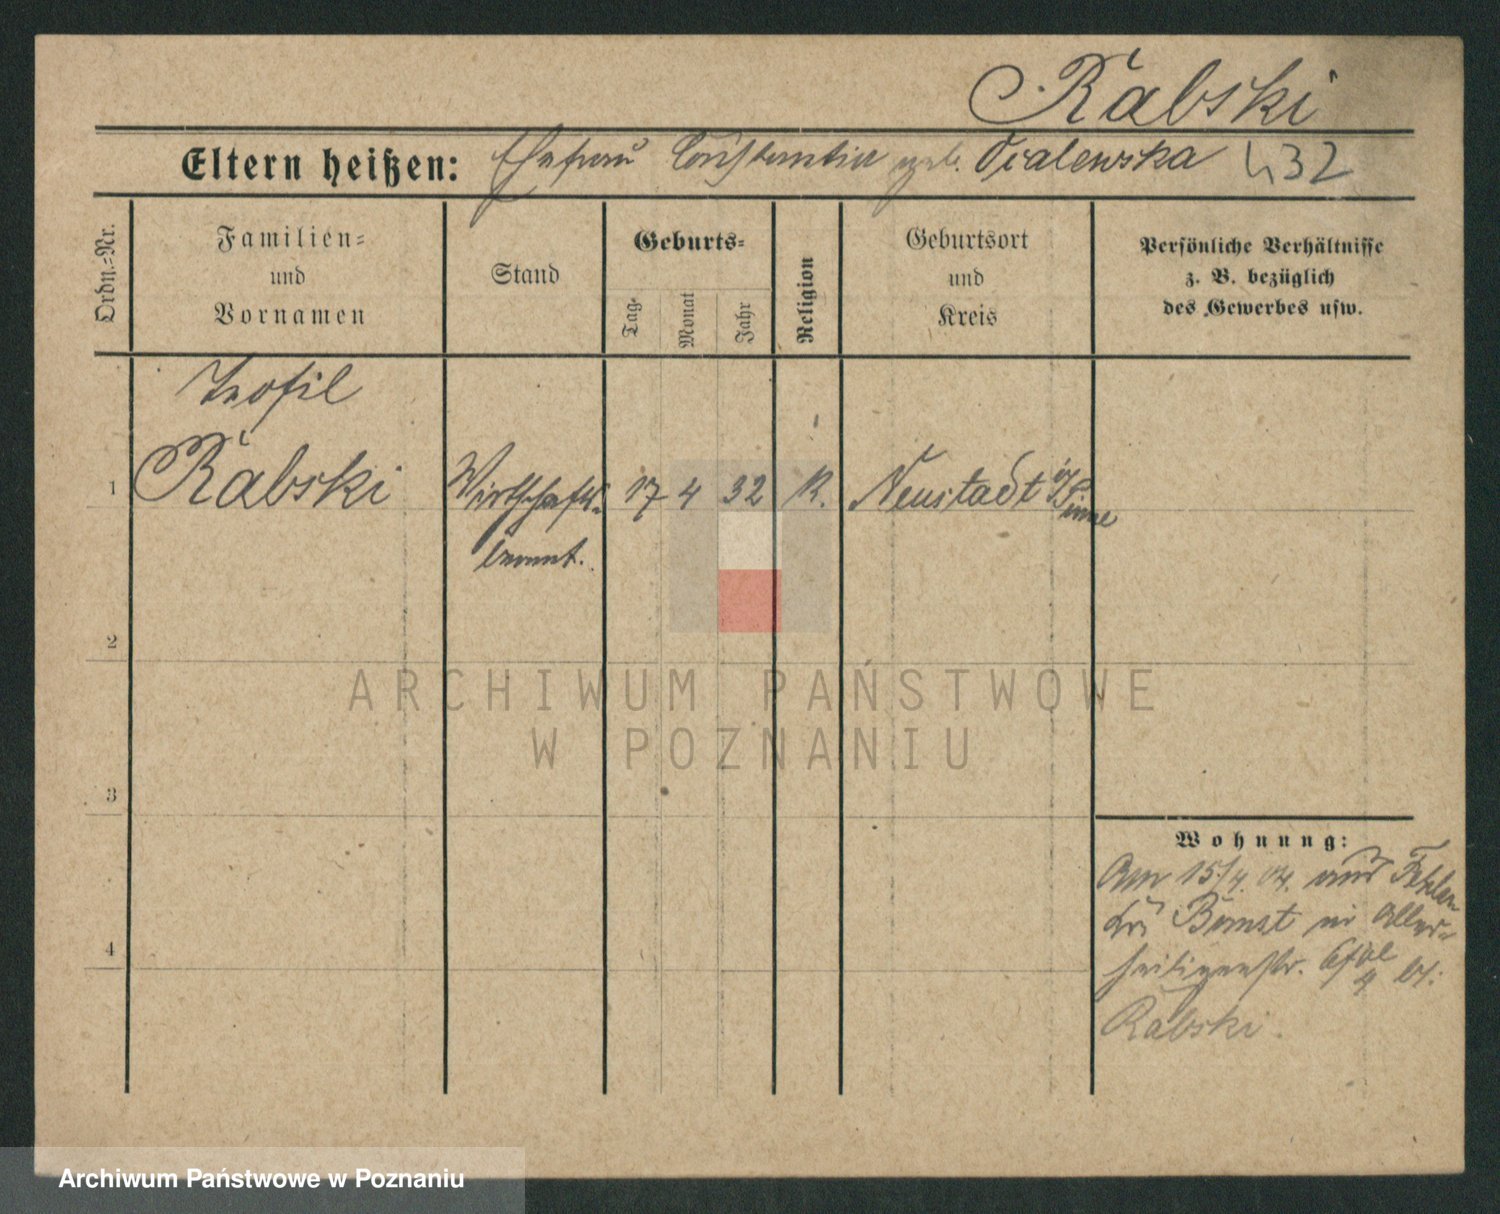 Rabski
Eltern heißen: Ehefrau Constantia geb. Vialewska 432
Ordn.=Nr.
Familien=
und
Vornamen
Stand
Geburts=
Tag
Monat
Jahr
Religion
Geburtsort
und
Kreis
Persönliche Verhältnisse
z. B. bezüglich
des Gewerbes usw.
Teofil
1 Rabski Wirthschafts= 17 4 32 K. Neustadt b/Pinne
beamt.
2
ARCHIWUM PAŃSTWOWE
W POZNANIU
3
Wohnung:
Am 15/4. 04. aus
Bomst in Aller=
4
heiligenstr. 4 bei
Rabski.
Archiwum Państwowe w Poznaniu